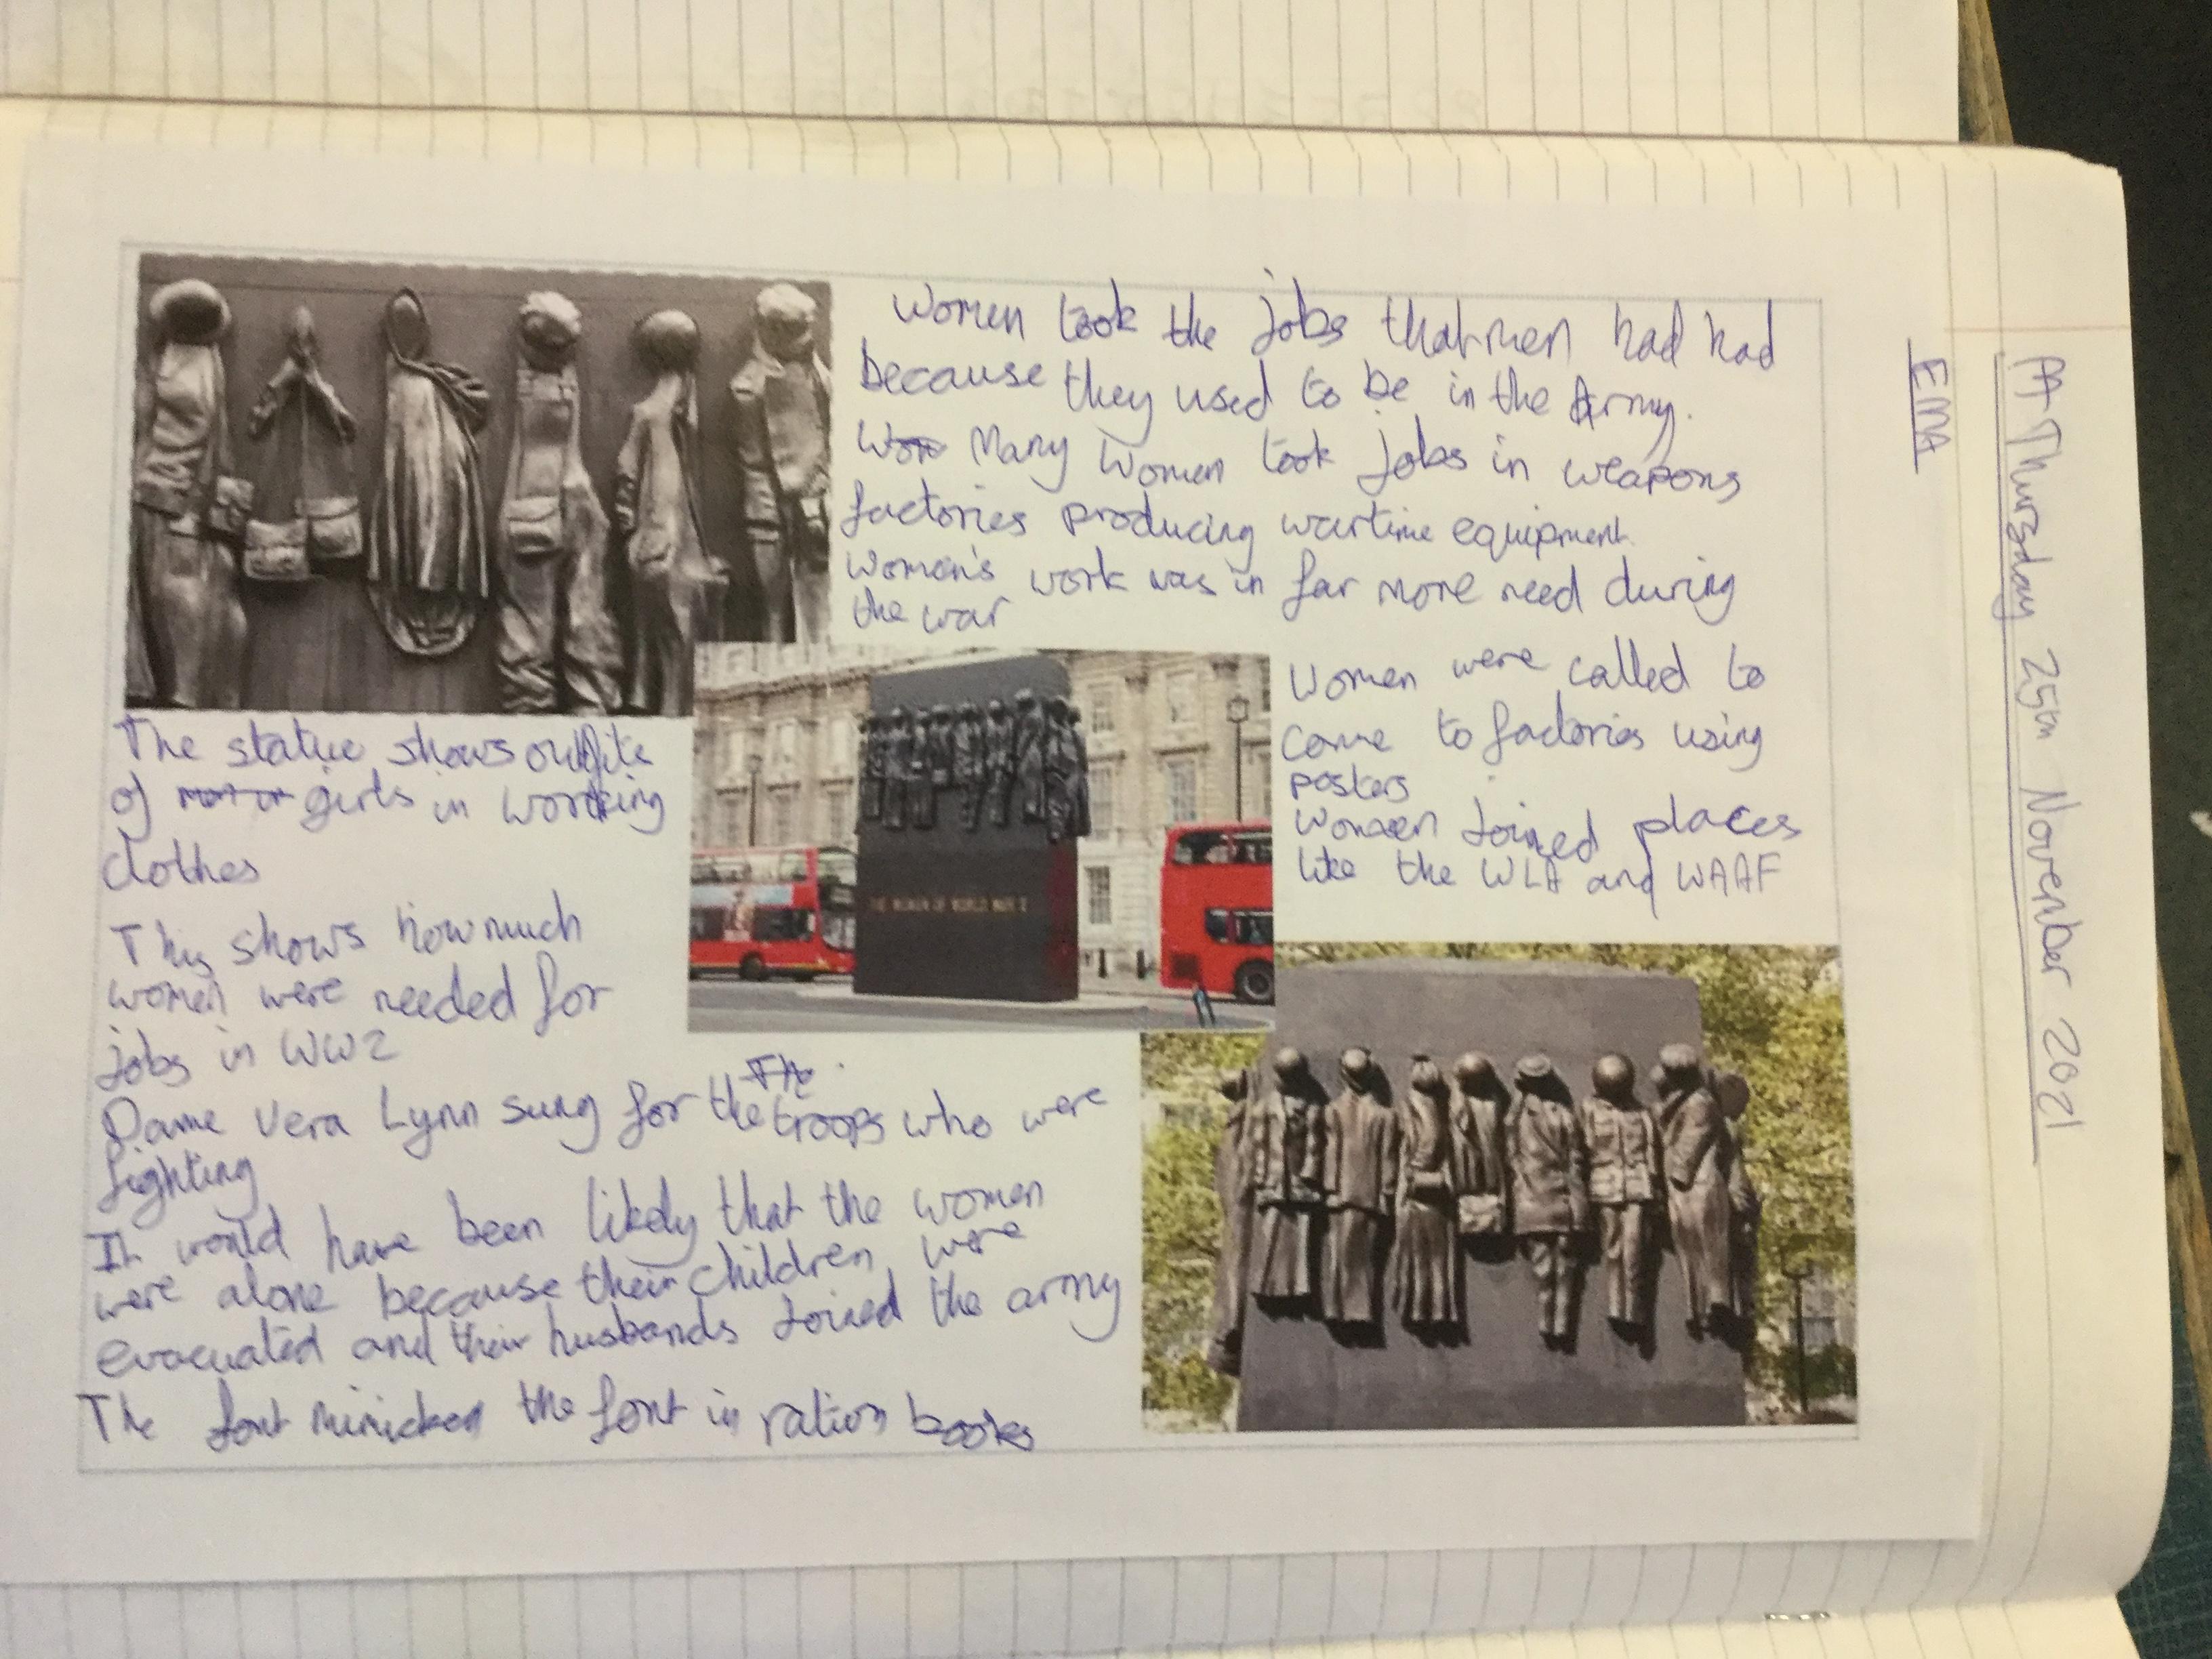 Thursday 25th November 2021
EMA
Women took the jobs that men had had
because they used to be in the Army.
Many Women took jobs in weapons
factories producing wartime equipment.
Women's work was in far more need during
the war
Women were called to
come to factories using
posters
Women joined places
like the WLA and WAAF
The statue shows outfits
of girls in working
clothes
This shows how much
women were needed for
jobs in WW2
Dame Vera Lynn sung for the troops who were
fighting
It would have been likely that the women
were alone because their children were
evacuated and their husbands joined the army
The font mimicked the font in ration books
THE WOMEN OF WORLD WAR II